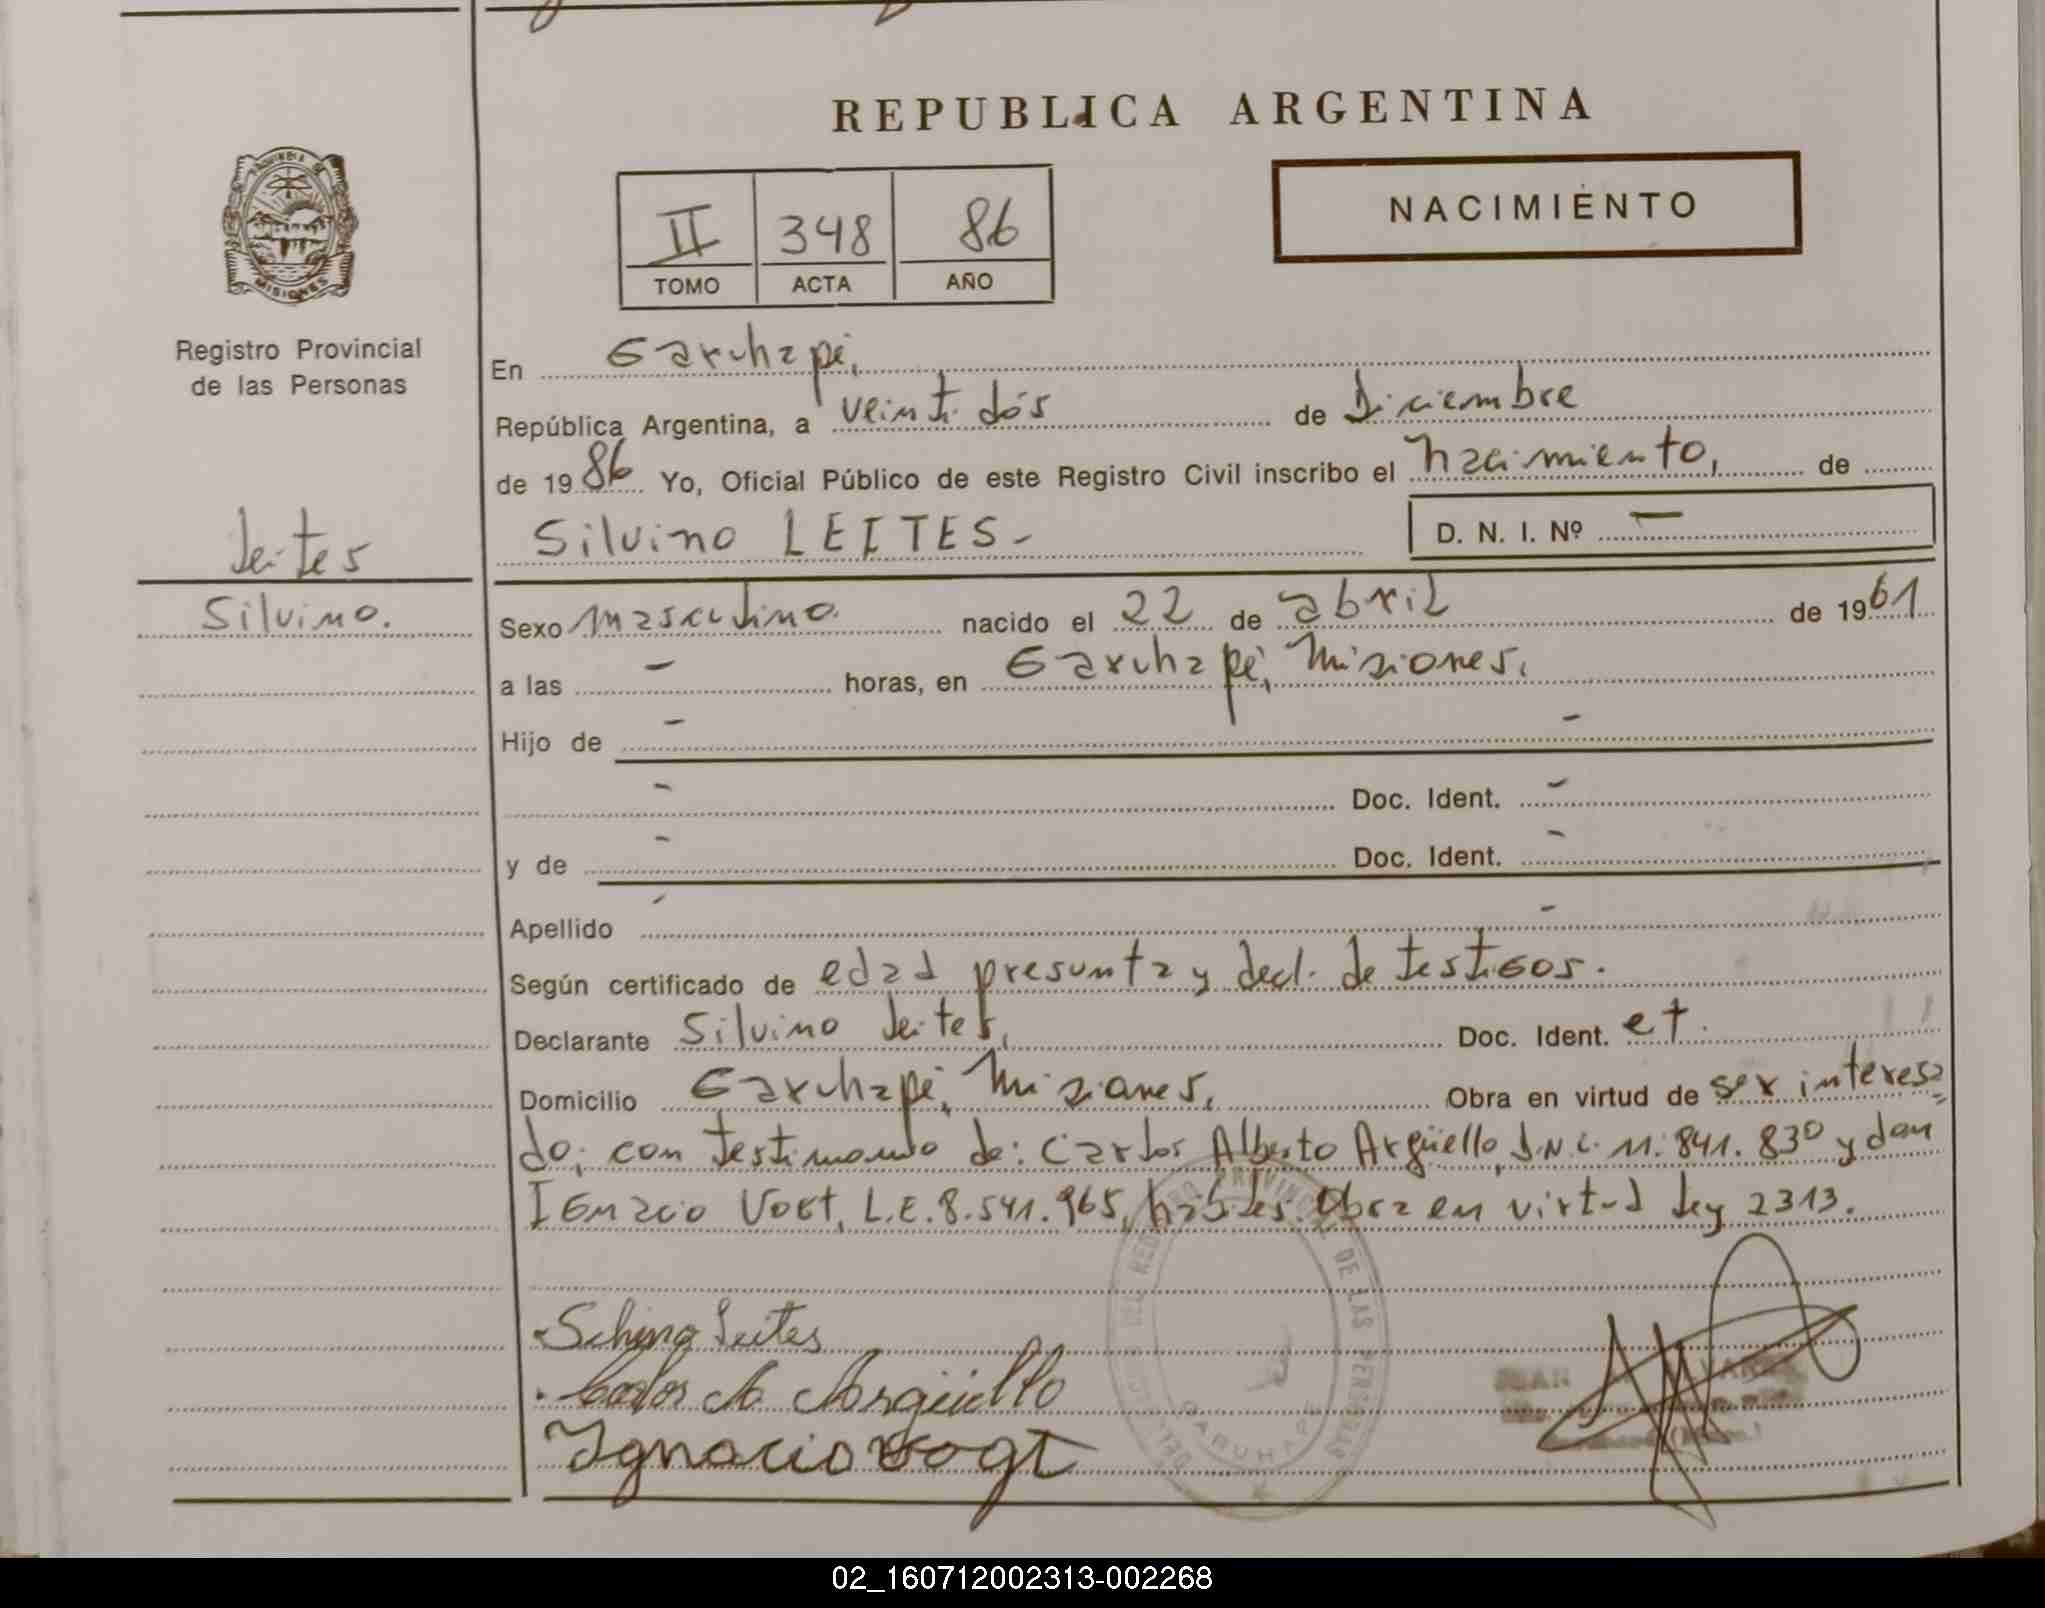 REPUBLICA ARGENTINA
PROVINCIA DE
MISIONES
Registro Provincial
de las Personas
II 348 86
TOMO ACTA AÑO
NACIMIENTO
En Garuhapé,
República Argentina, a veinti dós de Diciembre
de 1986 Yo, Oficial Público de este Registro Civil inscribo el nacimiento, de
Silvino LEITES- D. N. I. Nº —
Leites
Silvino.
Sexo masculino. nacido el 22 de abril de 1961
a las - horas, en Garuhapé, Misiones.
Hijo de - -
- Doc. Ident. -
y de - Doc. Ident. -
Apellido - -
Según certificado de edad presunta y decl. de testigos.
Declarante Silvino Leites, Doc. Ident. et.
Domicilio Garuhapé, Misiones, Obra en virtud de ser interesa=
do; con testimonio de: Carlos Alberto Argüello, D.N.I. 11.841.830 y don
Ignacio Vogt, L.E. 8.541.965, hábiles. Obra en virtud Ley 2313.
Silvino Leites
Carlos A Argüello
Ignacio Vogt
DEL REGISTRO PROVINCIAL DE LAS PERSONAS
GARUHAPE
JUAN
02_160712002313-002268